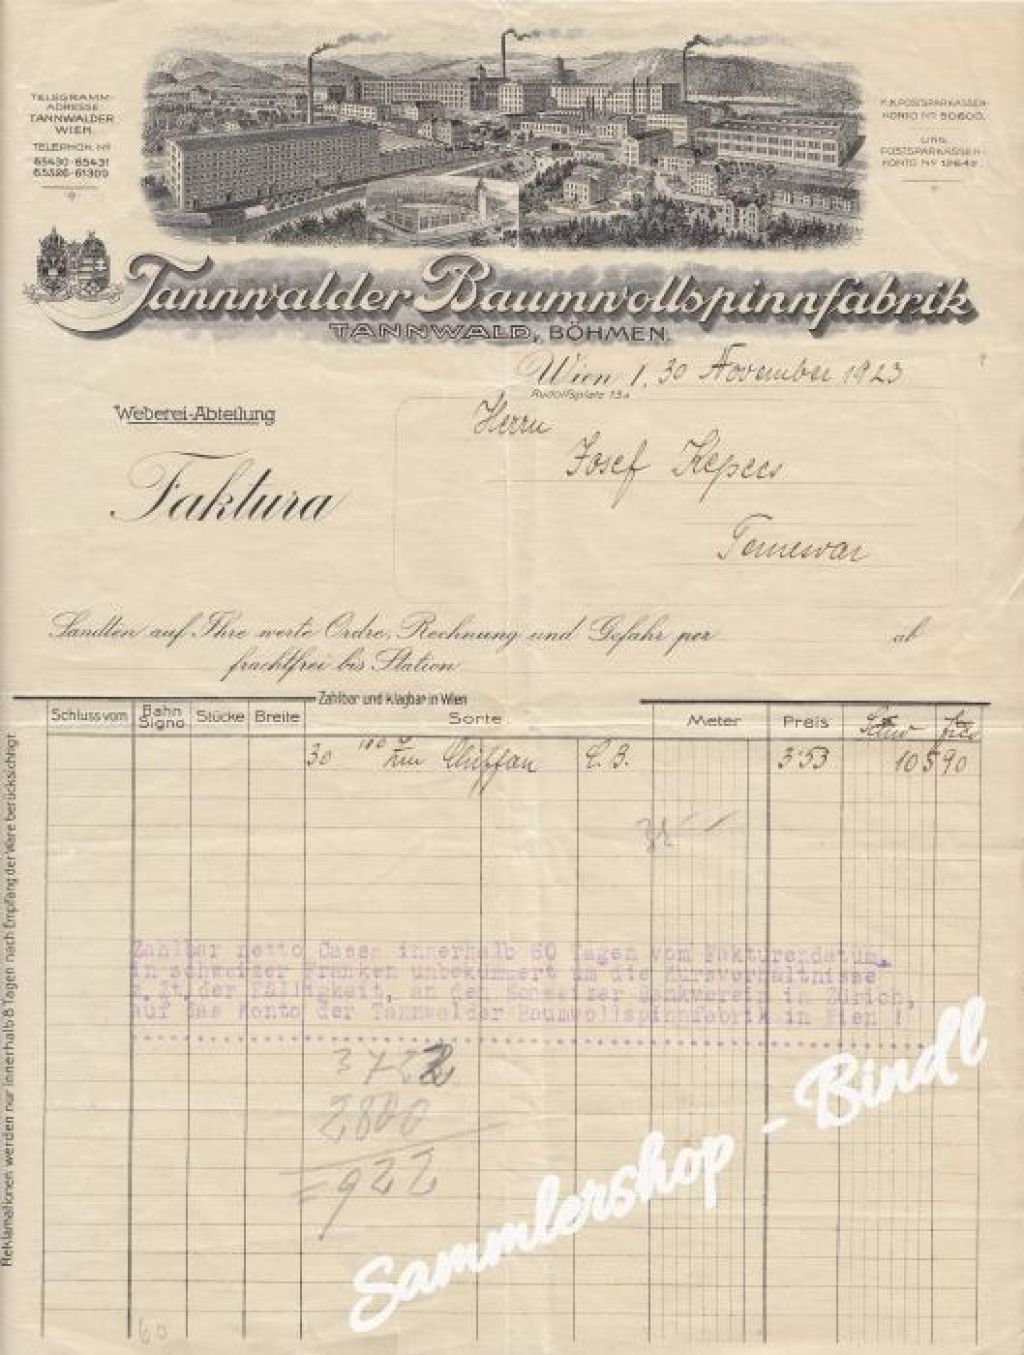 TELEGRAMM-
ADRESSE:
TANNWALDER
WIEN.
TELEPHON Nº
65430-65431
65526-61309
K.K.POSTSPARKASSEN-
KONTO Nº 50600.
UNG.
POSTSPARKASSEN-
KONTO Nº 12642.
Tannwalder Baumwollspinnfabrik
TANNWALD, BÖHMEN.
Wien I. 30 November 1923
Rudolfsplatz 13a
Weberei-Abteilung
Herrn
Josef Kepecs
Faktura
Temewar
Sandten auf Ihre werte Ordre, Rechnung und Gefahr per ab
frachtfrei bis Station
Zahlbar und klagbar in Wien
Schluss vom Bahn Signo Stücke Breite Sorte Meter Preis
30 Chiffon 3'53 105 90
Zahlbar netto Cassa innerhalb 60 Tagen vom Fakturendatum,
in schweizer Franken unbekümmert um die Kursverhältnisse
z. Zt. der Fälligkeit, an den Schweizer Bankverein in Zürich,
auf das Konto der Tannwalder Baumwollspinnfabrik in Wien !
3722
2800
= 922
60
Reklamationen werden nur innerhalb 8 Tagen nach Empfang der Ware berücksichtigt
Sammlershop - Bindl